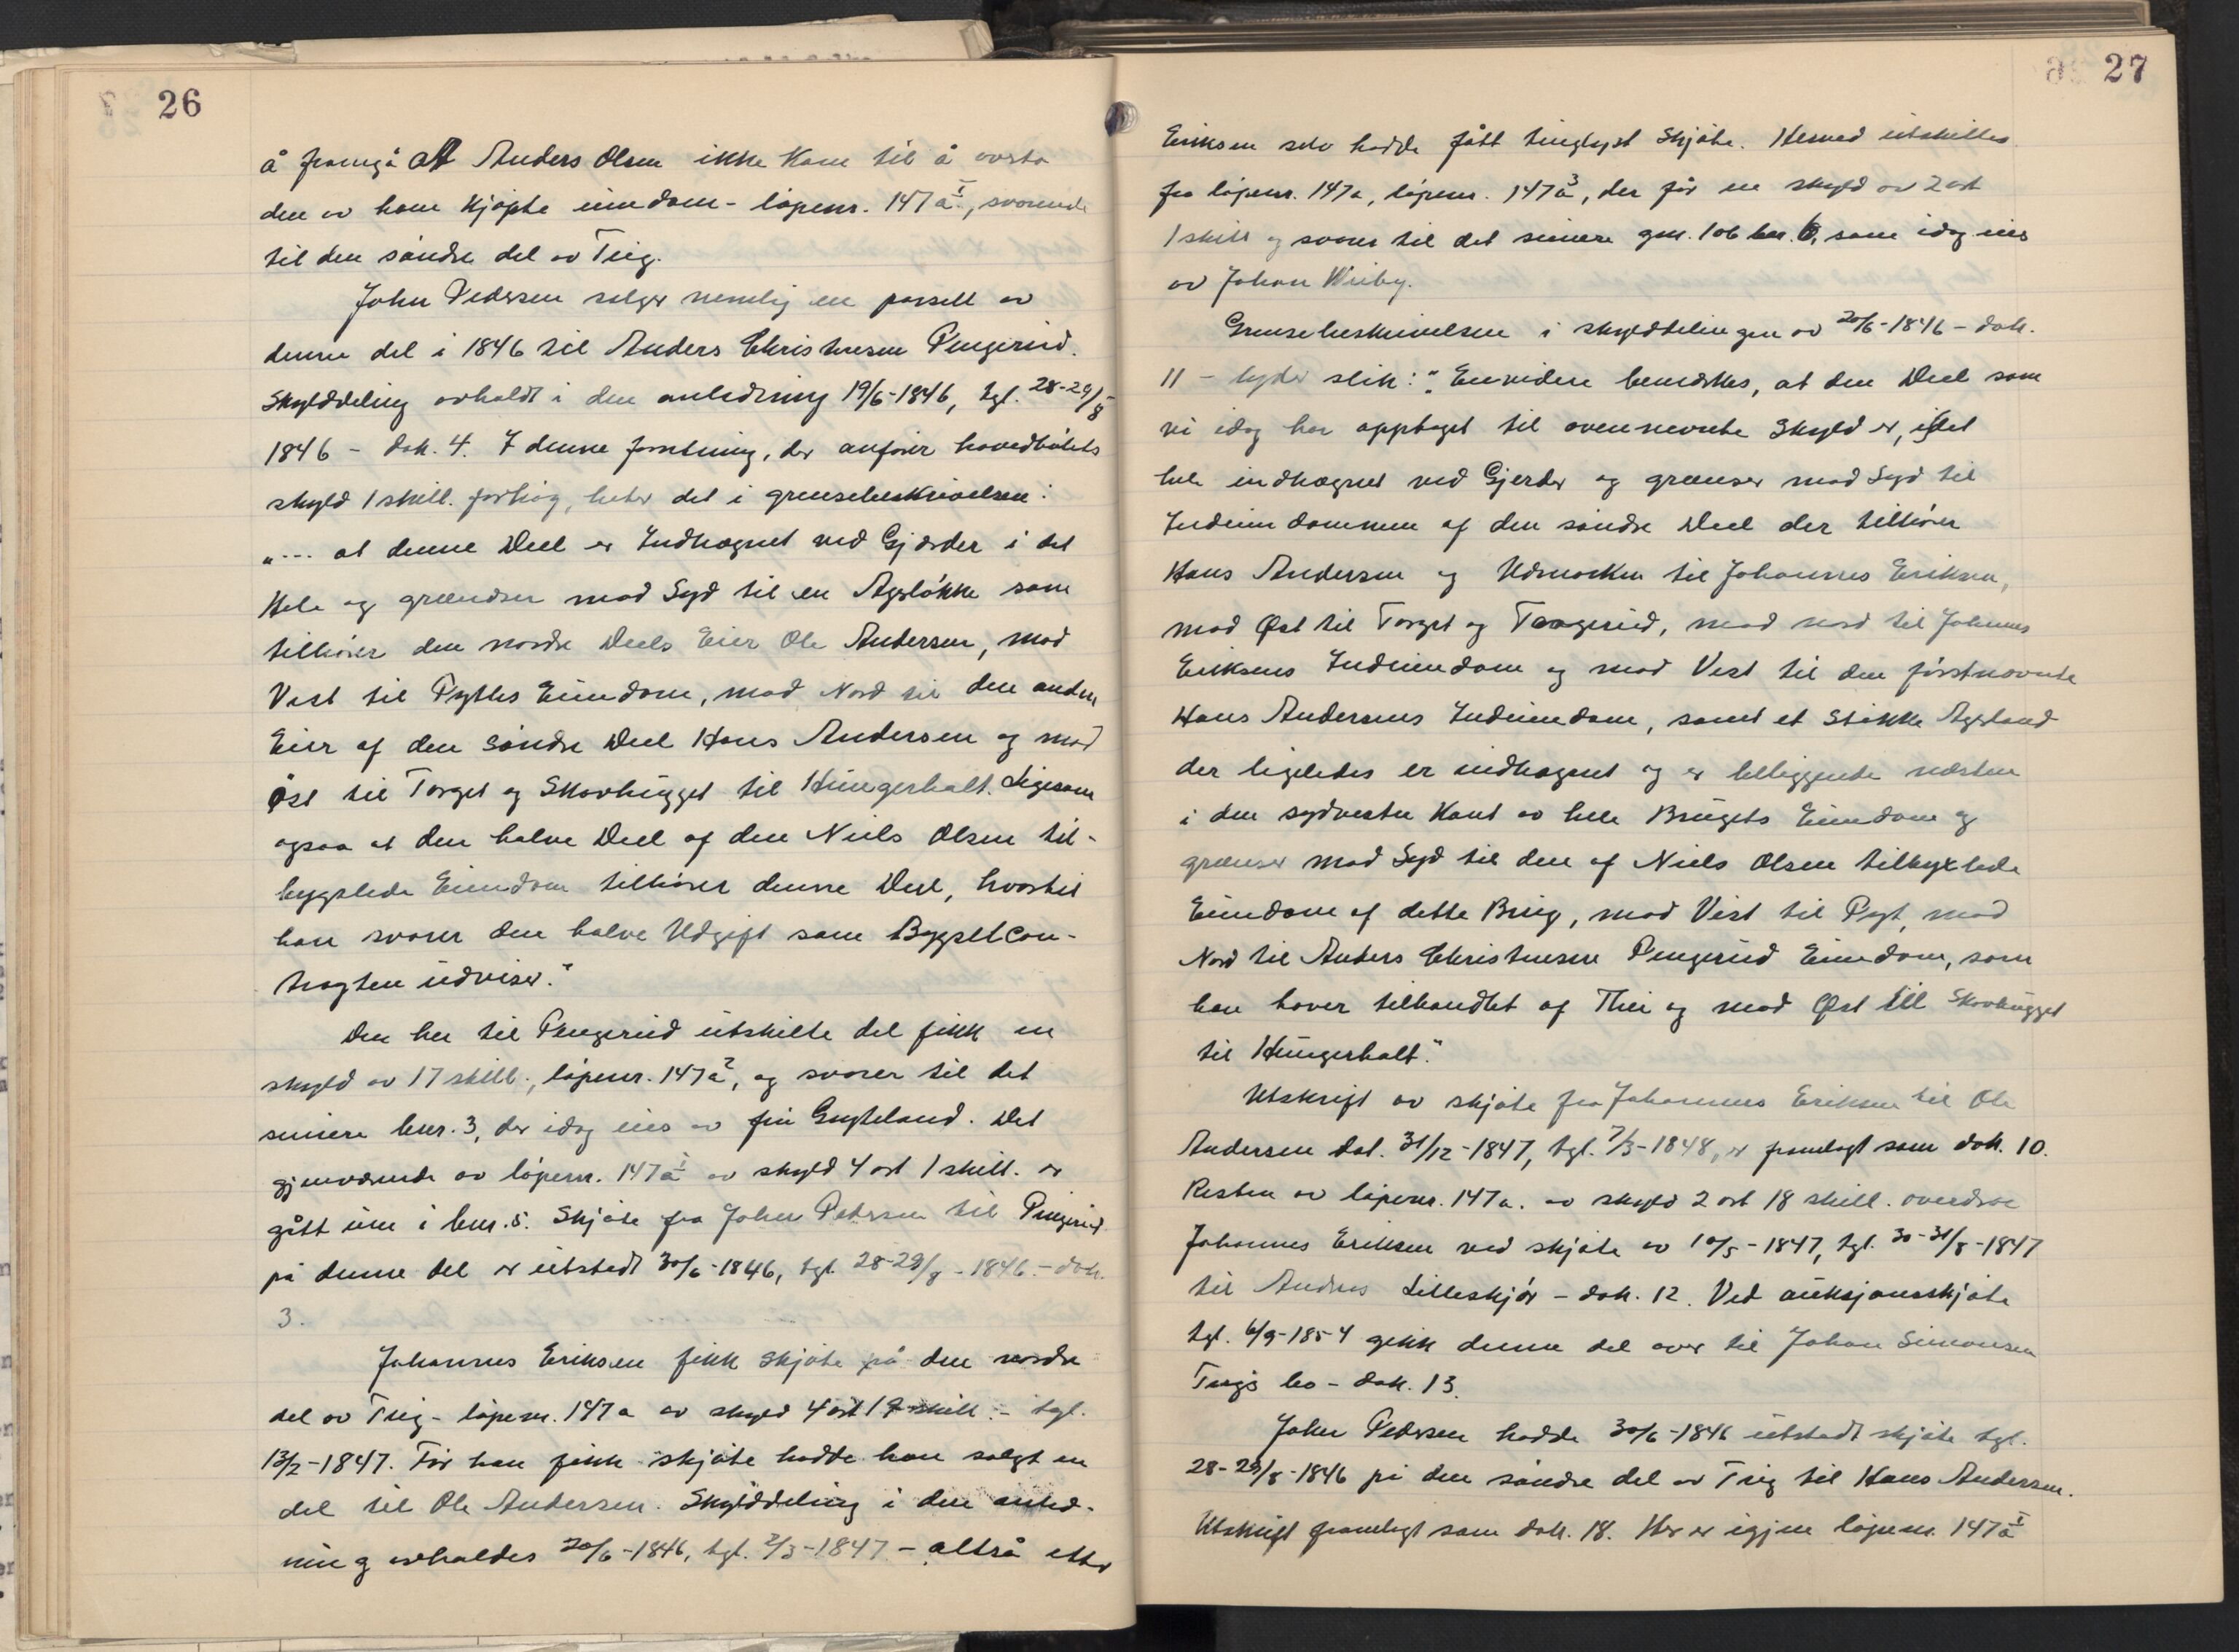 26
å fremgå at Anders Olsen ikke kom til å avstå
den av ham kjøpte eiendom - løpenr. 147 a¹, svarende
til den søndre del av Teig.
John Pedersen selger nemlig en parsell av
denne del i 1846 til Anders Christensen Pengerud.
Skylddeling avholdt i den anledning 19/6-1846, tgl. 28-29/8-
1846 - dok. 4. I denne forretning, der anfører hovedbølets
skyld 1 skill. for høg, heter det i grensebeskrivelsen:
"... at denne Deel er Indhægnet ved Gjærder i det
Hele og grændser mod Syd til en Agerløkke som
tilhører den nordre Deels Eier Ole Andersen, mod
Vest til Pyttes Eiendom, mod Nord til den anden
Eier af den Søndre Deel Hans Andersen og mod
Øst til Torget og Skovhugget til Hungerholt. Ligesom
ogsaa at den halve Deel af den Niels Olsen til-
bygslede Eiendom tilhører denne Deel, hvortil
han svarer den halve Udgift som Bygselcon-
tragten udviser."
Den her til Pengerud utskilte del fikk en
skyld av 17 skill., løpenr. 147 a², og svarer til det
senere bnr. 3, der idag eies av fru Gryteland. Det
gjenværende av løpenr. 147 a¹ av skyld 4 ort 1 skill. er
gått inn i bnr. 5. Skjøte fra John Pedersen til Pengerud
på denne del er utstedt 30/6-1846, tgl. 28-29/8-1846 - dok.
3.
Johannes Eriksen fikk skjøte på den nordre
del av Teig - løpenr. 147 a av skyld 4 ort 19 skill. - tgl.
13/2-1847. Før han fikk skjøte hadde han solgt en
del til Ole Andersen. Skylddeling i den anled-
ning avholdes 20/6-1846, tgl. 2/3-1847 - altså etter
27
Eriksen selv hadde fått tinglyst Skjøte. Herved utskilles
fra løpenr. 147a, løpenr. 147 a³, der får en skyld av 2 ort
1 skill og svarer til det senere gnr. 106 bnr. 6, som idag eies
av Johan Wiiby.
Grensebeskrivelsen i skylddelingen av 20/6-1846 - dok.
11 - lyder slik: "Envidere bemærkes, at den Deel som
vi idag har opptaget til ovennevnte Skyld er, i det
hele indhægnet ved Gjerder og grænser mod Syd til
Indeiendommen af den søndre Deel der tilhører
Hans Andersen og Udmarken til Johannes Eriksen,
mod Øst til Torget og Taagerud, mod nord til Johannes
Eriksens Indeiendom og mod Vest til den førstnævnte
Hans Andersens Indeiendom, samt et Støkke Agerland
der ligeledes er indhægnet og er beliggende næsten
i den sydvestre Kant av hele Brugets Eiendom og
grænser mod Syd til den af Niels Olsen tilbyxlede
Eiendom af dette Brug, mod Vest til Pyt, mod
Nord til Anders Christensen Pengerud Eiendom, som
han haver tilhandlet af Thei og mod Øst til Skovhugget
til Hungerholt."
Utskrift av skjøte fra Johannes Eriksen til Ole
Andersen dat. 31/12-1847, tgl. 7/3-1848, er framlagt som dok. 10.
Resten av løpenr. 147a. av skyld 2 ort 18 skill. overdrar
Johannes Eriksen ved skjøte av 10/5-1847, tgl. 30-31/8-1847
til Anders Lilleskjør - dok. 12. Ved auksjonsskjøte
tgl. 6/9-1854 gikk denne del over til Johan Simonsen
Teigs bo - dok. 13.
John Pedersen hadde 30/6-1846 utstedt skjøte tgl.
28-29/8-1846 på den søndre del av Teig til Hans Andersen.
Utskrift framlagt som dok. 18. Her er igjen løpenr. 147 a¹